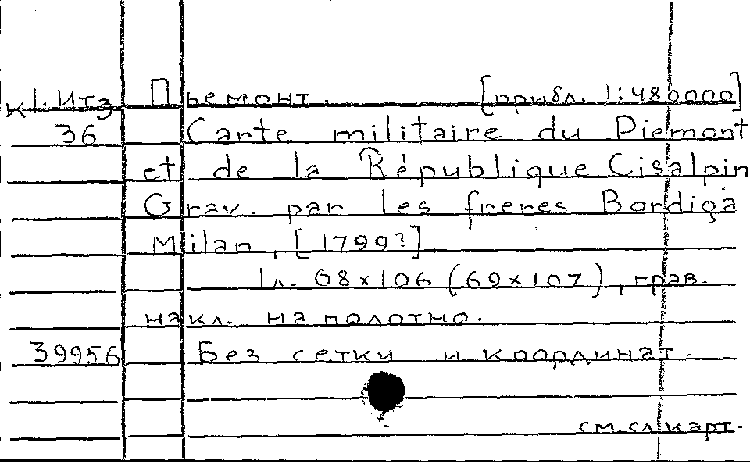 к1.Итз Пьемонт. [прибл. 1:480000]
36 Carte militaire du Piemont
et de la République Cisalpin
Grav. par les freres Bordiga
Milan, [1799?]
1л. 68x106 (69x107), грав.
накл. на полотно.
39956 Без сетки и координат.
см.сл.карт.